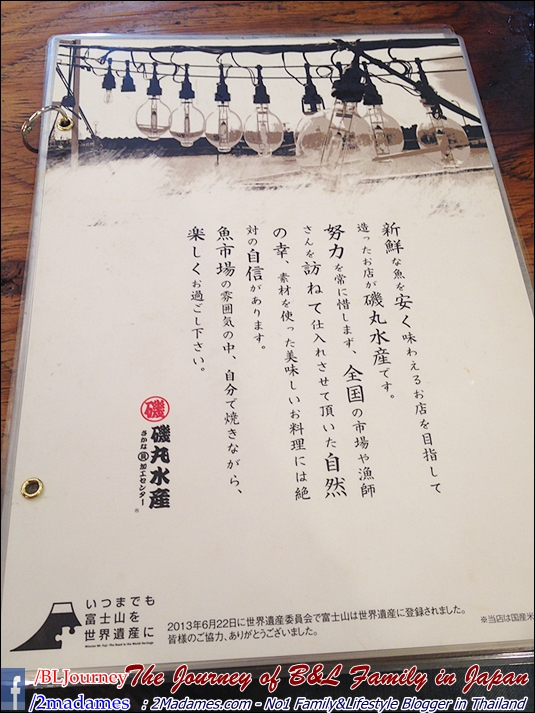 新鮮な魚を安く味わえるお店を目指して
造ったお店が磯丸水産です。
努力を常に惜しまず、全国の市場や漁師
さんを訪ねて仕入れさせて頂いた自然
の幸、素材を使った美味しいお料理には絶
対の自信があります。
魚市場の雰囲気の中、自分で焼きながら、
楽しくお過ごし下さい。
磯
磯丸水産
さかな 加工センター
いつまでも
富士山を
世界遺産に
2013年6月22日に世界遺産委員会で富士山は世界遺産に登録されました。
皆様のご協力、ありがとうございました。
※当店は国産米
/BLJourney The Journey of B&L Family in Japan
/2madames : 2Madames.com - No1 Family&Lifestyle Blogger in Thailand